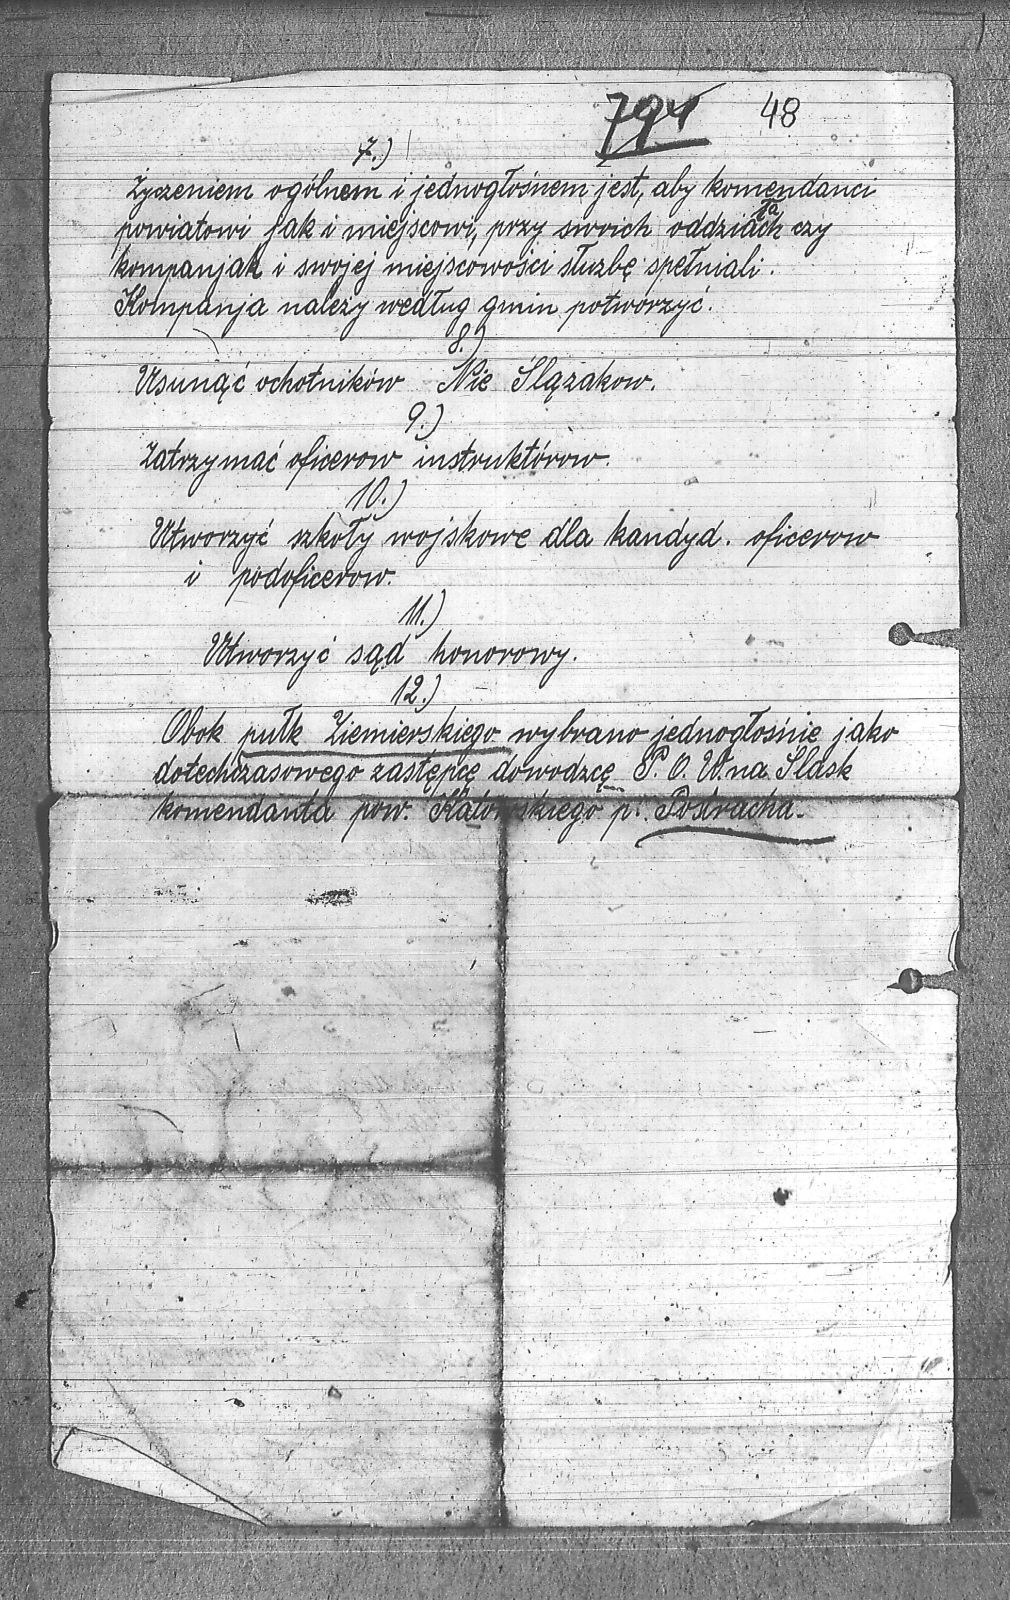 794 48
7.)
Życzeniem ogólnem i jednogłośnem jest, aby komendanci
powiatowi jak i miejscowi, przy swoich oddziach czy
kompanjak i swojej miejscowości służbę spełniali.
Kompanja należy według gmin potworzyć.
8.)
Usunąć ochotników Nie Ślązakow.
9.)
Zatrzymać oficerow instruktórow.
10.)
Utworzyć szkoły wojskowe dla kandyd. oficerow
i podoficerow.
11.)
Utworzyć sąd honorowy.
12.)
Obok pułk Ziemierskiego wybrano jednogłośnie jako
dotechczasowego zastępcę dowodzcę P. O. W. na Slask
komendanta pow. Katowskiego p. Postracha.